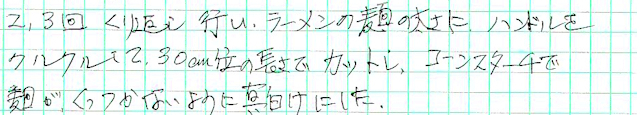 2,3回 くり返し 行い、ラーメンの麺の太さに ハンドルを
クルクルして、30cm位の長さで カットし、コーンスターチで
麺が くっつかないように 真白けにした。